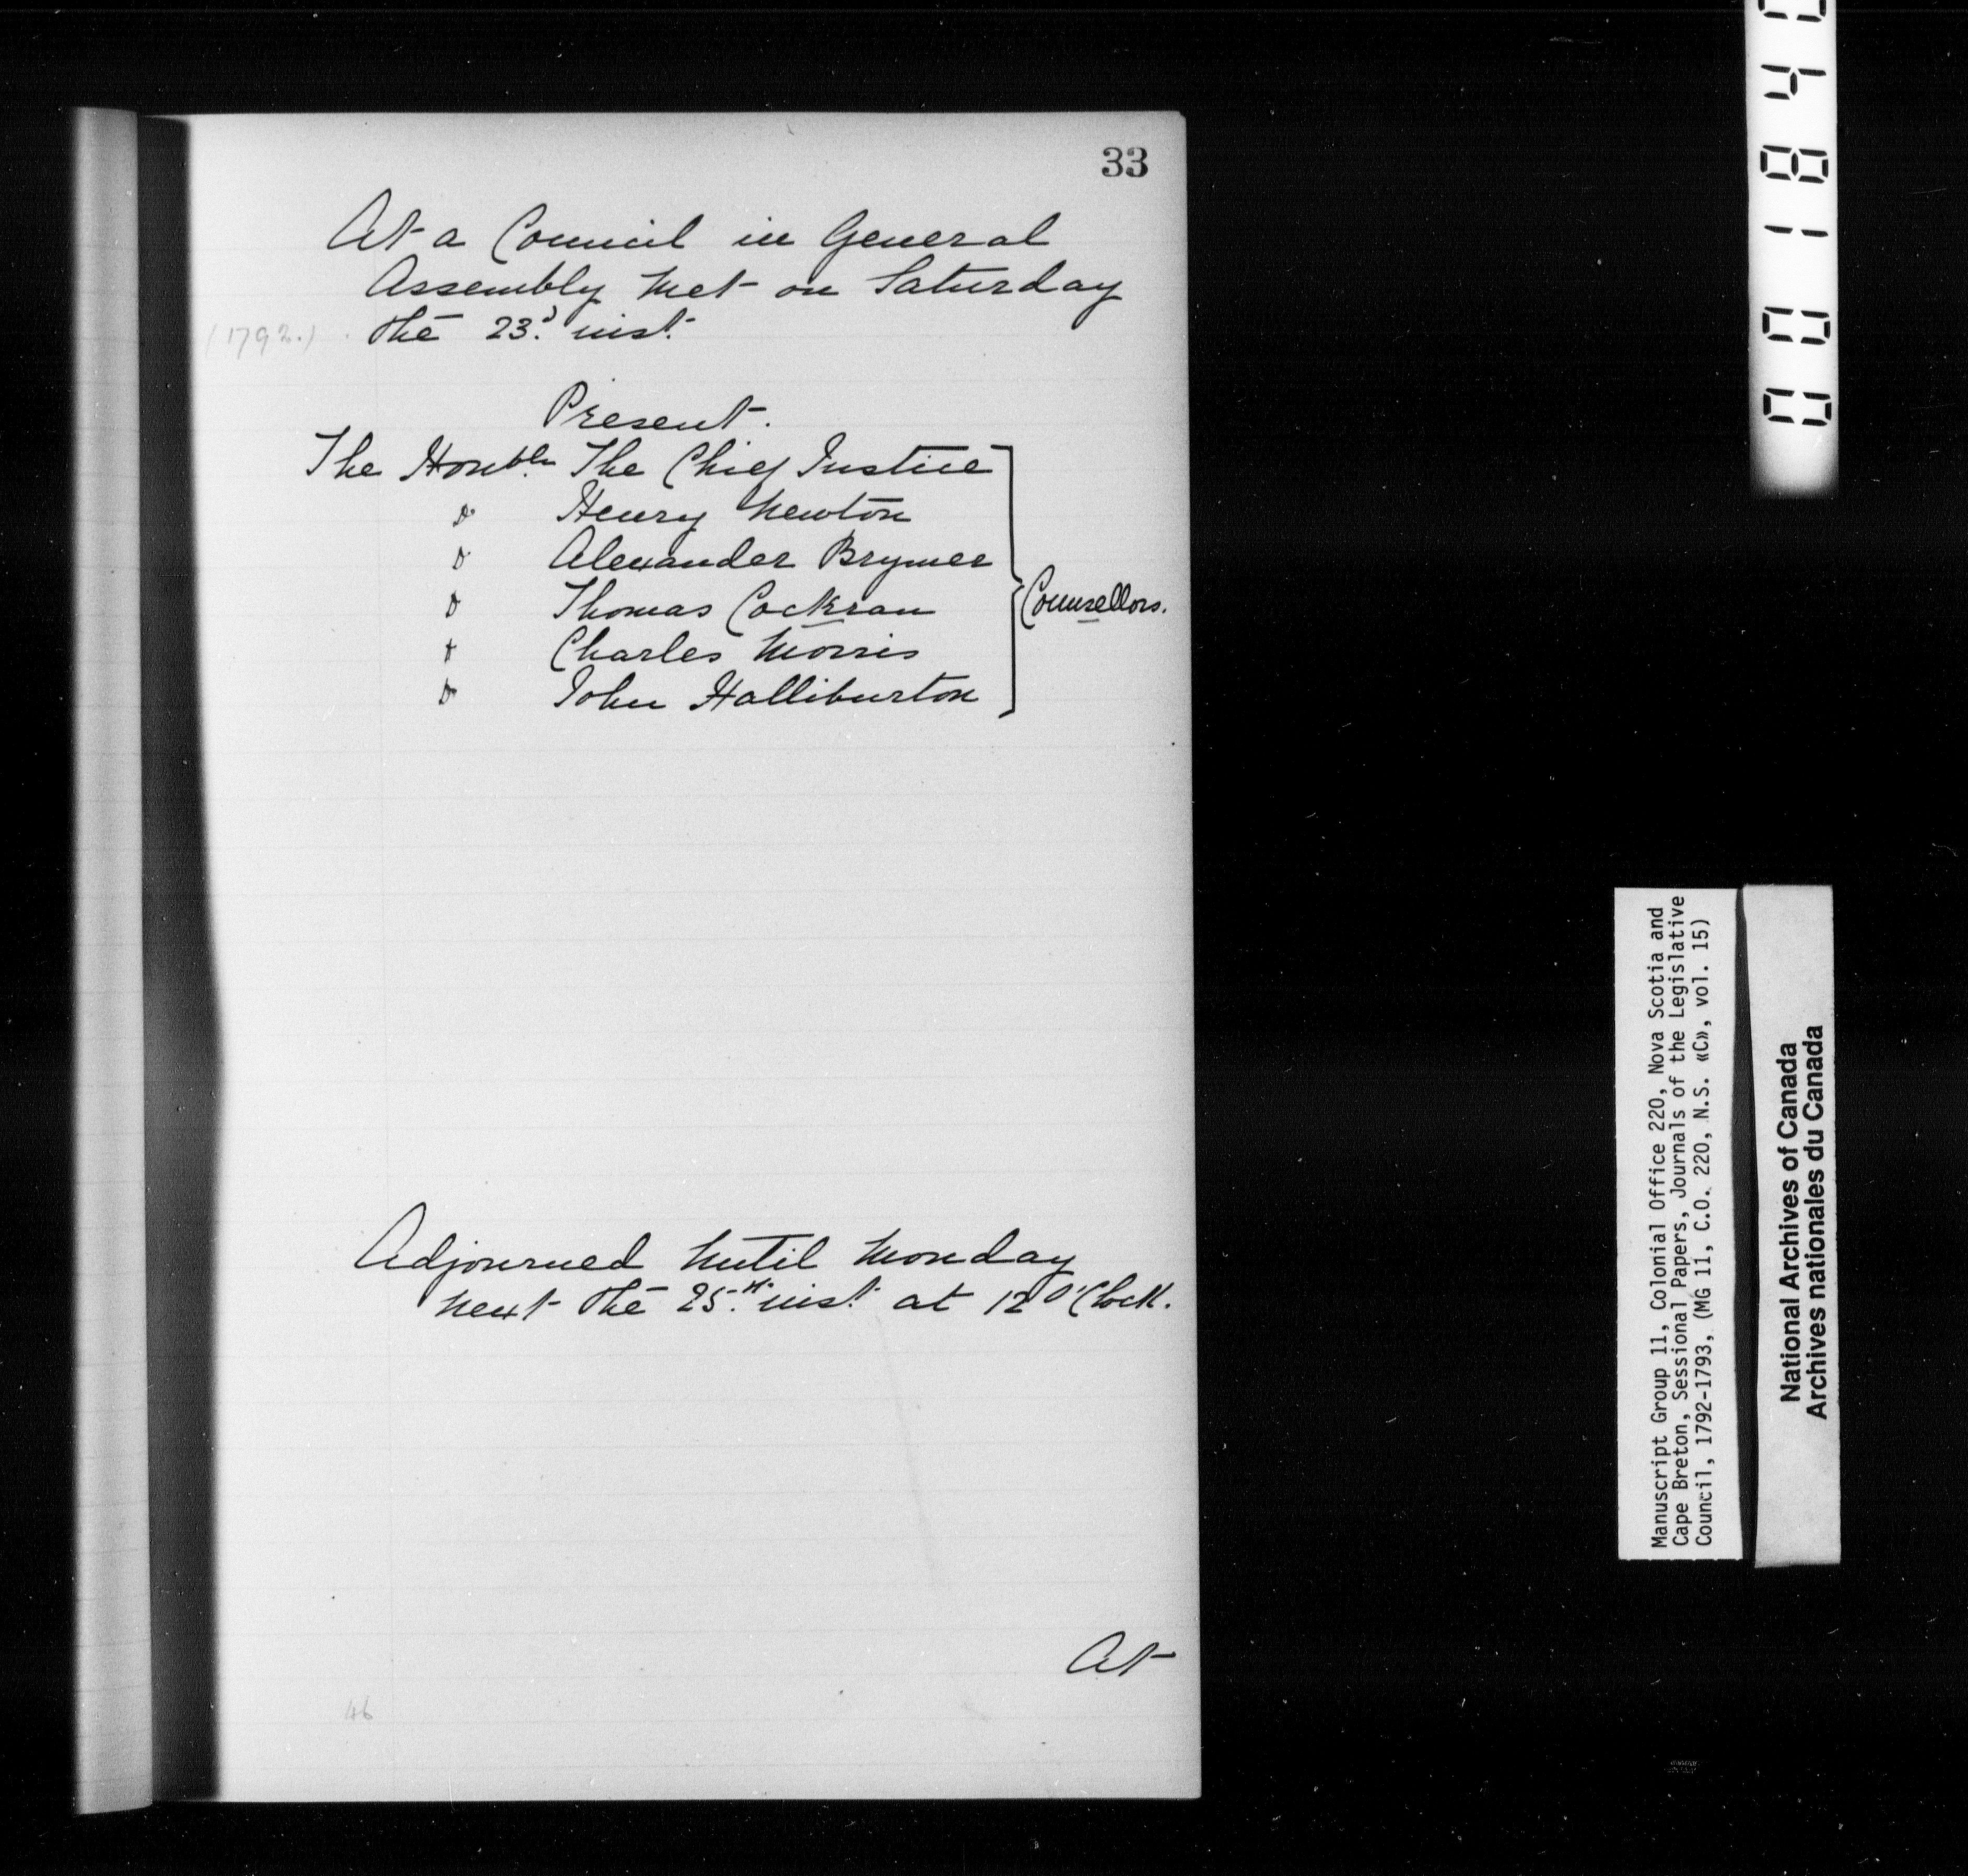 33
At a Council in General
Assembly met on Saturday
(1792.) the 23d. inst.
Present.
The Honble. The Chief Justice
do Henry Newton
do Alexander Brymer
do Thomas Cockran
do Charles Morris
do John Halliburton
Counsellors.
Adjourned until Monday
next the 25th. inst. at 12 O'Clock.
At
46
Manuscript Group 11, Colonial Office 220, Nova Scotia and
Cape Breton, Sessional Papers, Journals of the Legislative
Council, 1792-1793, (MG 11, C.O. 220, N.S. «C», vol. 15)
National Archives of Canada
Archives nationales du Canada